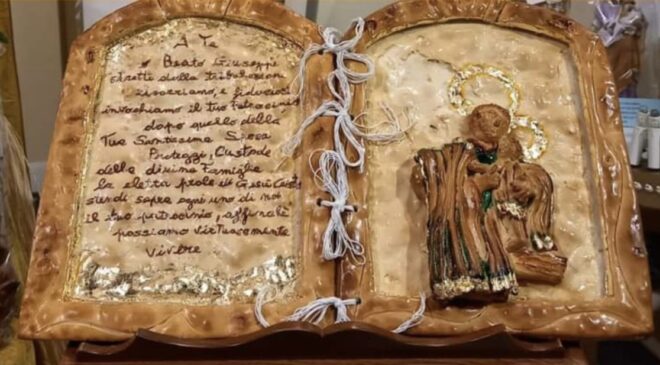 A Te
o Beato Giuseppe
stretti dalla tribolazione
ricorriamo, e fiduciosi
invochiamo il tuo Patrocinio
dopo quello della
Tua Santissima Sposa
Proteggi, Custode
della divina Famiglia
la eletta prole di Gesù Cristo
stendi sopra ogni uno di noi
il tuo patrocinio, affinché
possiamo virtuosamente
vivere